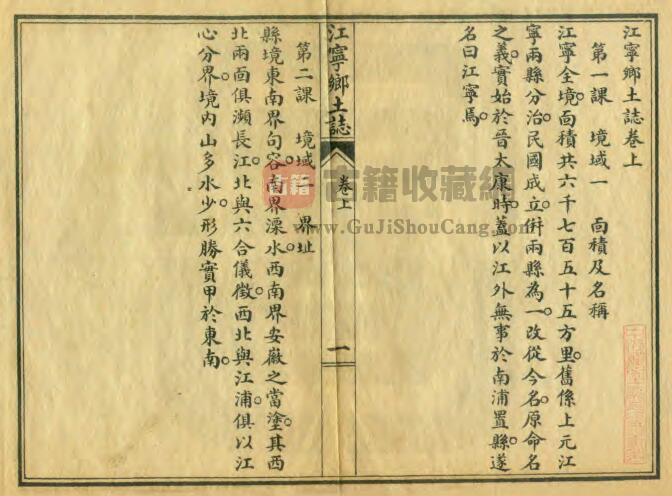 江寧鄉土誌卷上
第一課　境域一　面積及名稱
江寧全境。面積共六千七百五十五方里。舊係上元江
寧兩縣分治。民國成立。併兩縣為一。改從今名。原命名
之義。實始於晉太康時。蓋以江外無事。於南浦置縣。遂
名曰江寧焉。
江寧鄉土誌
卷上
一
第二課　境域二　界址
縣境東南界句容。南界溧水。西南界安徽之當塗。其西
北兩面俱瀕長江。北與六合儀徵。西北與江浦。俱以江
心分界。境內山多水少。形勝實甲於東南。
古籍
古籍收藏網
www.GuJiShouCang.com